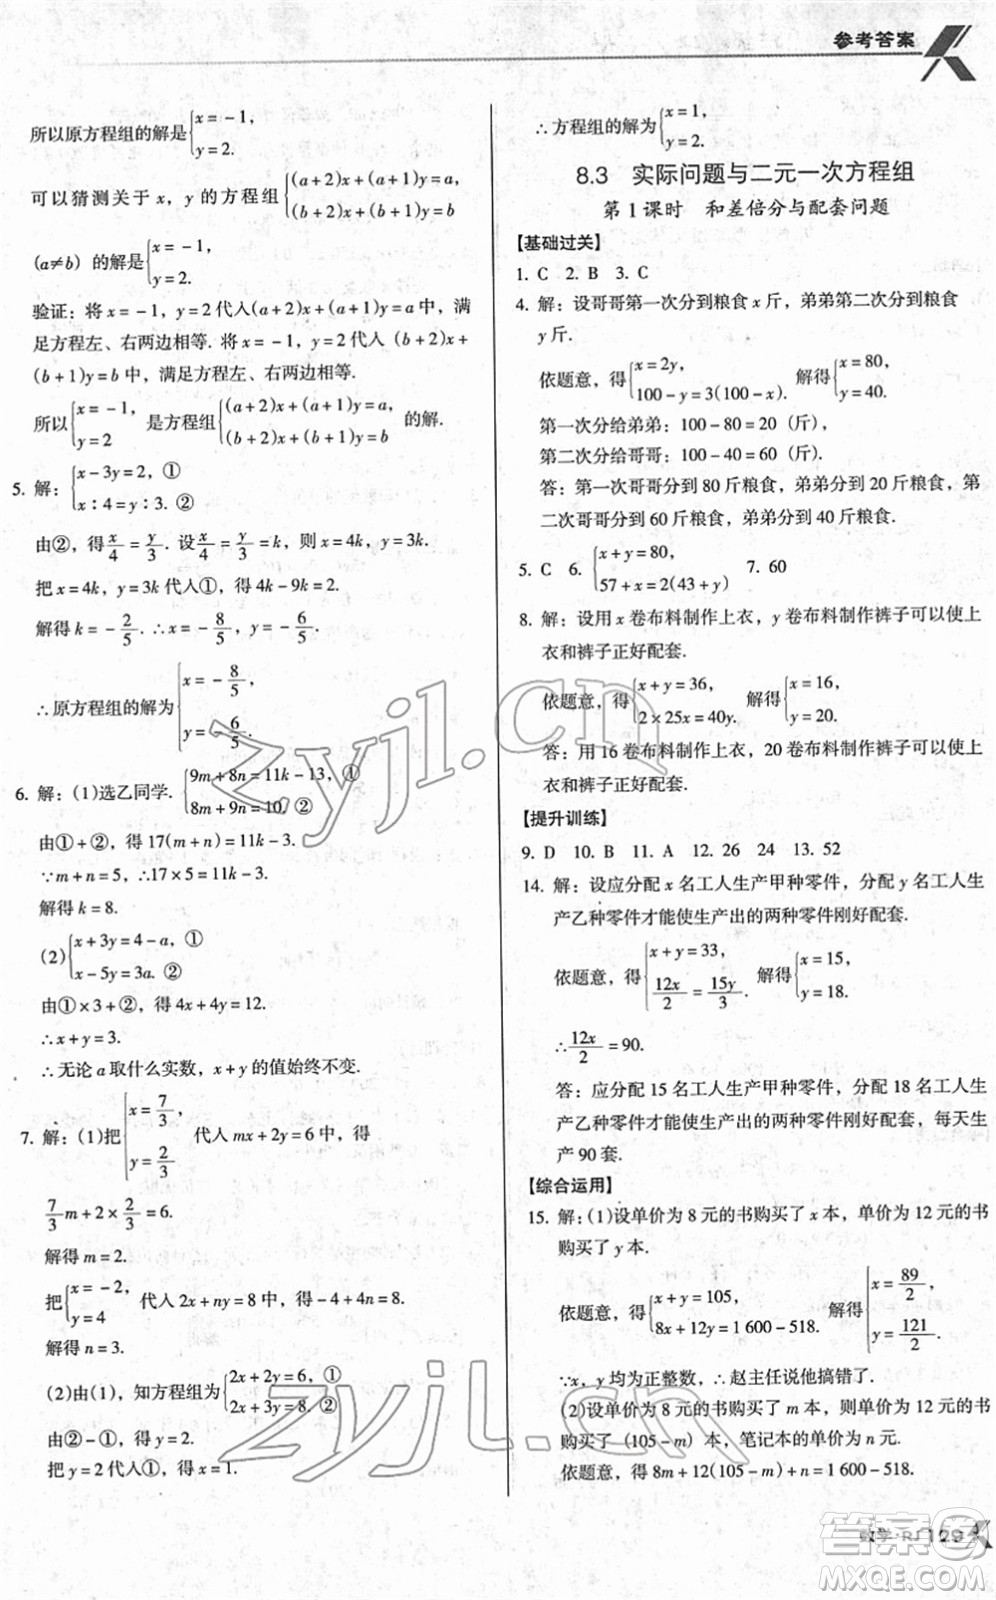 参考答案
所以原方程组的解是{x=-1, y=2.
可以猜测关于 x, y 的方程组{(a+2)x+(a+1)y=a, (b+2)x+(b+1)y=b
(a≠b) 的解是{x=-1, y=2.
验证：将 x=-1, y=2 代入(a+2)x+(a+1)y=a 中，满
足方程左、右两边相等. 将 x=-1, y=2 代入 (b+2)x+
(b+1)y=b 中，满足方程左、右两边相等.
所以{x=-1, y=2 是方程组{(a+2)x+(a+1)y=a, (b+2)x+(b+1)y=b 的解.
5. 解：{x-3y=2, ① x∶4=y∶3. ②
由②，得x/4=y/3. 设x/4=y/3=k，则 x=4k, y=3k.
把 x=4k, y=3k 代入①，得 4k-9k=2.
解得 k=-2/5. ∴x=-8/5, y=-6/5.
∴原方程组的解为{x=-8/5, y=-6/5.
6. 解：(1)选乙同学. {9m+8n=11k-13, ① 8m+9n=10. ②
由①+②，得 17(m+n)=11k-3.
∵m+n=5, ∴17×5=11k-3.
解得 k=8.
(2){x+3y=4-a, ① x-5y=3a. ②
由①×3+②，得 4x+4y=12.
∴x+y=3.
∴无论 a 取什么实数，x+y 的值始终不变.
7. 解：(1)把{x=7/3, y=2/3 代入 mx+2y=6 中，得
7/3m+2×2/3=6.
解得 m=2.
把{x=-2, y=4 代入 2x+ny=8 中，得-4+4n=8.
解得 n=3.
(2)由(1)，知方程组为{2x+2y=6, ① 2x+3y=8. ②
由②-①，得 y=2.
把 y=2 代入①，得 x=1.
∴方程组的解为{x=1, y=2.
8.3 实际问题与二元一次方程组
第 1 课时 和差倍分与配套问题
【基础过关】
1. C 2. B 3. C
4. 解：设哥哥第一次分到粮食 x 斤，弟弟第二次分到粮食
y 斤.
依题意，得{x=2y, 100-y=3(100-x). 解得{x=80, y=40.
第一次分给弟弟：100-80=20 (斤),
第二次分给哥哥：100-40=60 (斤).
答：第一次哥哥分到 80 斤粮食，弟弟分到 20 斤粮食，第
二次哥哥分到 60 斤粮食，弟弟分到 40 斤粮食.
5. C 6. {x+y=80, 57+x=2(43+y) 7. 60
8. 解：设用 x 卷布料制作上衣，y 卷布料制作裤子可以使上
衣和裤子正好配套.
依题意，得{x+y=36, 2×25x=40y. 解得{x=16, y=20.
答：用 16 卷布料制作上衣，20 卷布料制作裤子可以使上
衣和裤子正好配套.
【提升训练】
9. D 10. B 11. A 12. 26 24 13. 52
14. 解：设应分配 x 名工人生产甲种零件，分配 y 名工人生
产乙种零件才能使生产出的两种零件刚好配套.
依题意，得{x+y=33, 12x/2=15y/3. 解得{x=15, y=18.
∴12x/2=90.
答：应分配 15 名工人生产甲种零件，分配 18 名工人生
产乙种零件才能使生产出的两种零件刚好配套，每天生
产 90 套.
【综合运用】
15. 解：(1)设单价为 8 元的书购买了 x 本，单价为 12 元的书
购买了 y 本.
依题意，得{x+y=105, 8x+12y=1 600-518. 解得{x=89/2, y=121/2.
∵x, y 均为正整数，∴赵主任说他搞错了.
(2)设单价为 8 元的书购买了 m 本，则单价为 12 元的书
购买了 (105-m) 本，笔记本的单价为 n 元.
依题意，得 8m+12(105-m)+n=1 600-518.
数学·RJ 129
zyjl.cn
zyjl.cn
答案圈
MXQE.COM